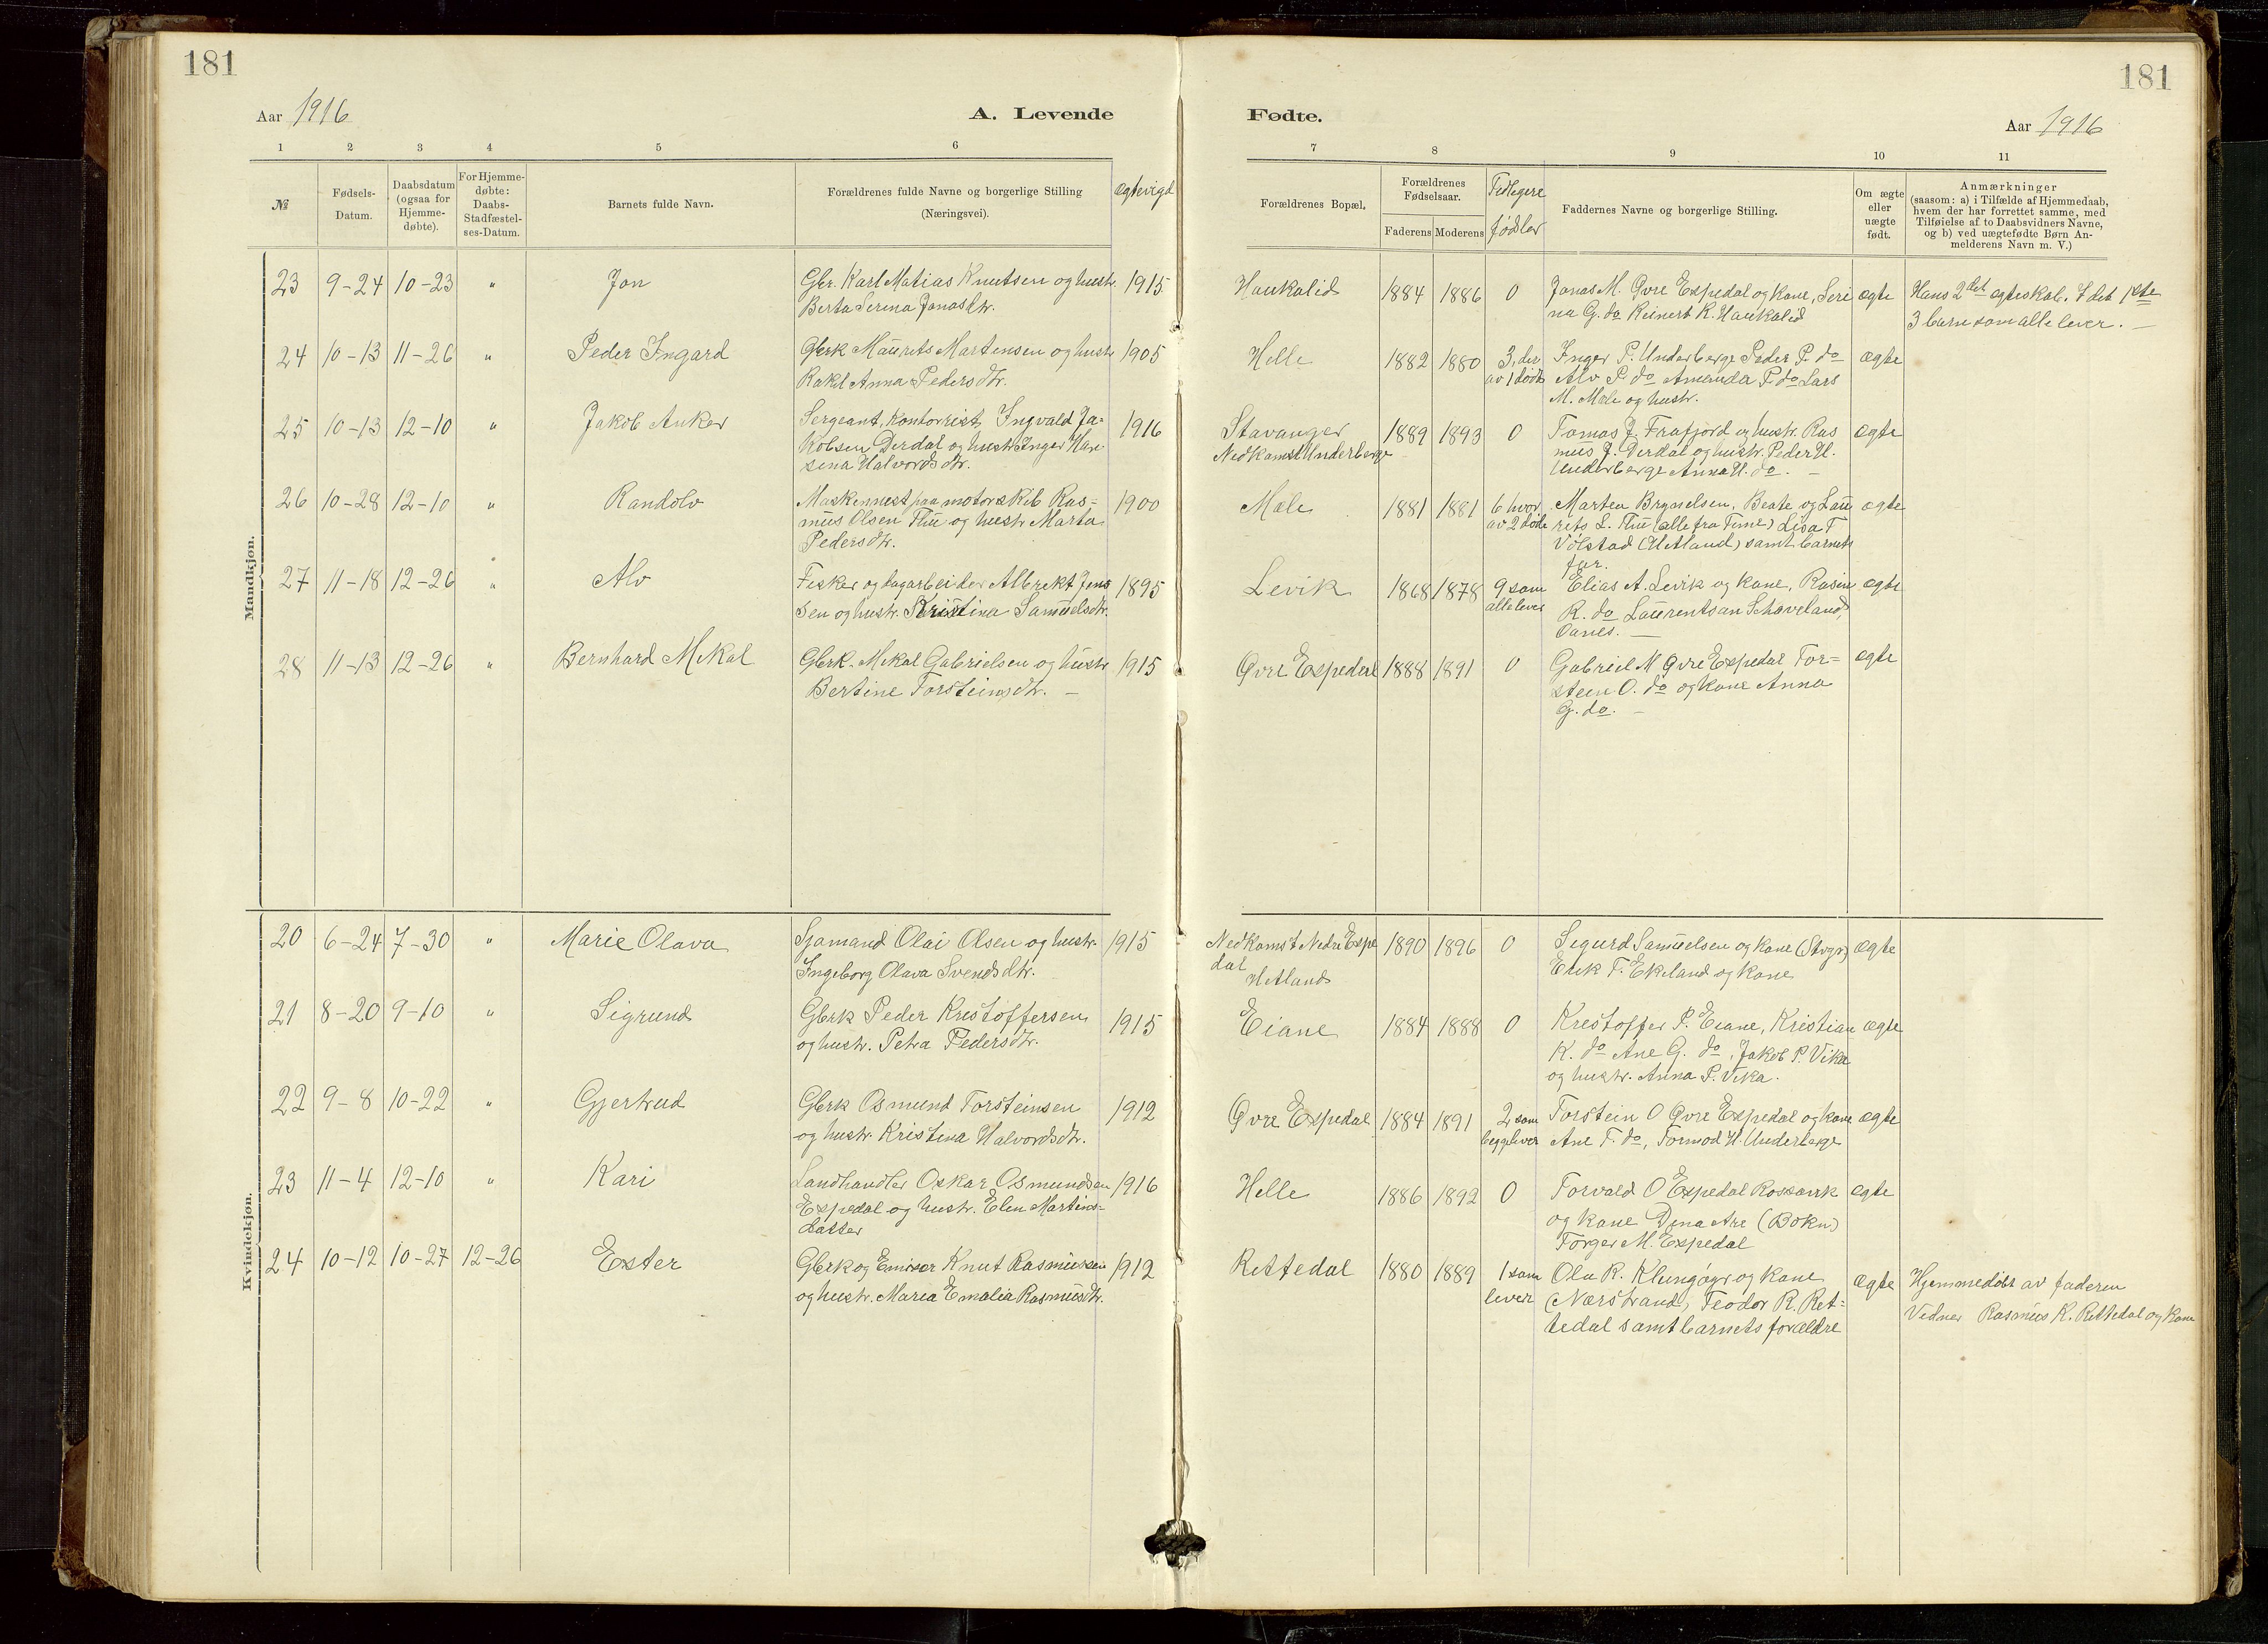 181
181
Aar 1916
A. Levende
Fødte.
Aar 1916
1 2 3 4 5 6 7 8 9 10 11
№
Fødsels-
Datum.
Daabsdatum
(ogsaa for
Hjemme-
døbte).
For Hjemme-
døbte:
Daabs-
Stadfæstel-
ses-Datum.
Barnets fulde Navn.
Forældrenes fulde Navne og borgerlige Stilling
(Næringsvei).
ægtevigd
Forældrenes Bopæl.
Forældrenes
Fødselsaar.
Faderens Moderens
Tidligere
fødsler
Faddernes Navne og borgerlige Stilling.
Om ægte
eller
uægte
født.
Anmærkninger
(saasom: a) i Tilfælde af Hjemmedaab,
hvem der har forrettet samme, med
Tilføielse af to Daabsvidners Navne,
og b) ved uægtefødte Børn An-
melderens Navn m. V.)
Mandkjøn.
23 9-24 10-23 " Jon Gbr. Karl Matias Knutsen og hustr. 1915 Haukalid 1884 1886 0 Jonas M. Øvre Espedal og kone, Seri ægte Hans 2det ægteskab. I det 1ste
Berta Serina Jonasdtr. na G. do Reinert K. Haukalid 3 barn som alle lever. —
24 10-13 11-26 " Peder Ingard Gbrk Maurits Martensen og hustr 1905 Helle 1882 1880 3, der Inger P. Underberge Peder P. do ægte
Rakel Anna Pedersdtr. av 1 død Alv P. do Amanda P. do Lars
M. Mæle og hustr.
25 10-13 12-10 " Jakob Anker Sergeant, Kontorrist Ingvald Ja- 1916 Stavanger 1889 1893 0 Tomas J. Frafjord og hustr. Ras ægte
kobsen Dirdal og hustr Inger Han Nedkomst Underberge mus J. Dirdal og hustr. Peder H.
sena Halvordsdtr. Underberge Anna H. do. —
26 10-28 12-10 " Randolv Maskinmest paa motorskib Ras- 1900 Mæle 1881 1881 6 hvor Martea Brynelsen, Beate og Lau ægte
mus Olsen Thu og hustr Marta av 2 døde rits L. Thu (alle fra Time) Lisa T
Pedersdtr. Vølstad (Hetland) samt barnets
far.
27 11-18 12-26 " Alv Fisker og dagarbeider Albrekt Jens 1895 Levik 1868 1878 9 som Elias A. Levik og kone, Rasine ægte
sen og hustr. Kristina Samuelsdtr. alle lever R. do Laurentsan Schaveland,
Oanes. —
28 11-13 12-26 " Bernhard Mikal Gbrk. Mikal Gabrielsen og hustr 1915 Øvre Espedal 1888 1891 0 Gabriel M Øvre Espedal Tor- ægte
Bertine Torsteinsdtr. — steen O. do og kone Anna
G. do. —
Kvindekjøn.
20 6-24 7-30 " Marie Olava Sjømand Olai Olsen og hustr. 1915 Nedkomst Nedre Espe 1890 1896 0 Sigurd Samuelsen og kone (Stvgr) ægte
Ingeborg Olava Svendsdtr. dal Erik T. Ekeland og kone
Hetland
21 8-20 9-10 " Sigrund Gbrk Peder Kristoffersen 1915 Eiane 1884 1888 0 Kristoffer P. Eiane, Kristian ægte
og hustr. Petra Pedersdtr. K. do Ane G. do, Jakob P. Vika
og hustr. Anna P. Vika.
22 9-8 10-22 " Gjertrud Gbrk Osmund Torsteinsen 1912 Øvre Espedal 1884 1891 2 som Torstein O Øvre Espedal og kone ægte
og hustr. Kristina Halvordsdtr. begge lever Ane T. do, Tormod H. Underberge
23 11-4 12-10 " Kari Landhandler Oskar Osmundsen 1916 Helle 1886 1892 0 Torvald O Espedal Rossavik ægte
Espedal og hustr. Elen Martins- og kone Dina Are (Bokn)
datter Torger M. Espedal
24 10-12 10-27 12-26 Ester Gbrk og Emisær Knut Rasmussen 1912 Rettedal 1880 1889 1 som Ola R. Klungøyr og kone ægte Hjemmedøbt av faderen
og hustr. Maria Emalia Rasmusdtr. lever (Nærstrand), Teodor R. Ret- Vidner Rasmus K. Rettedal og kone
tedal samt barnets forældre